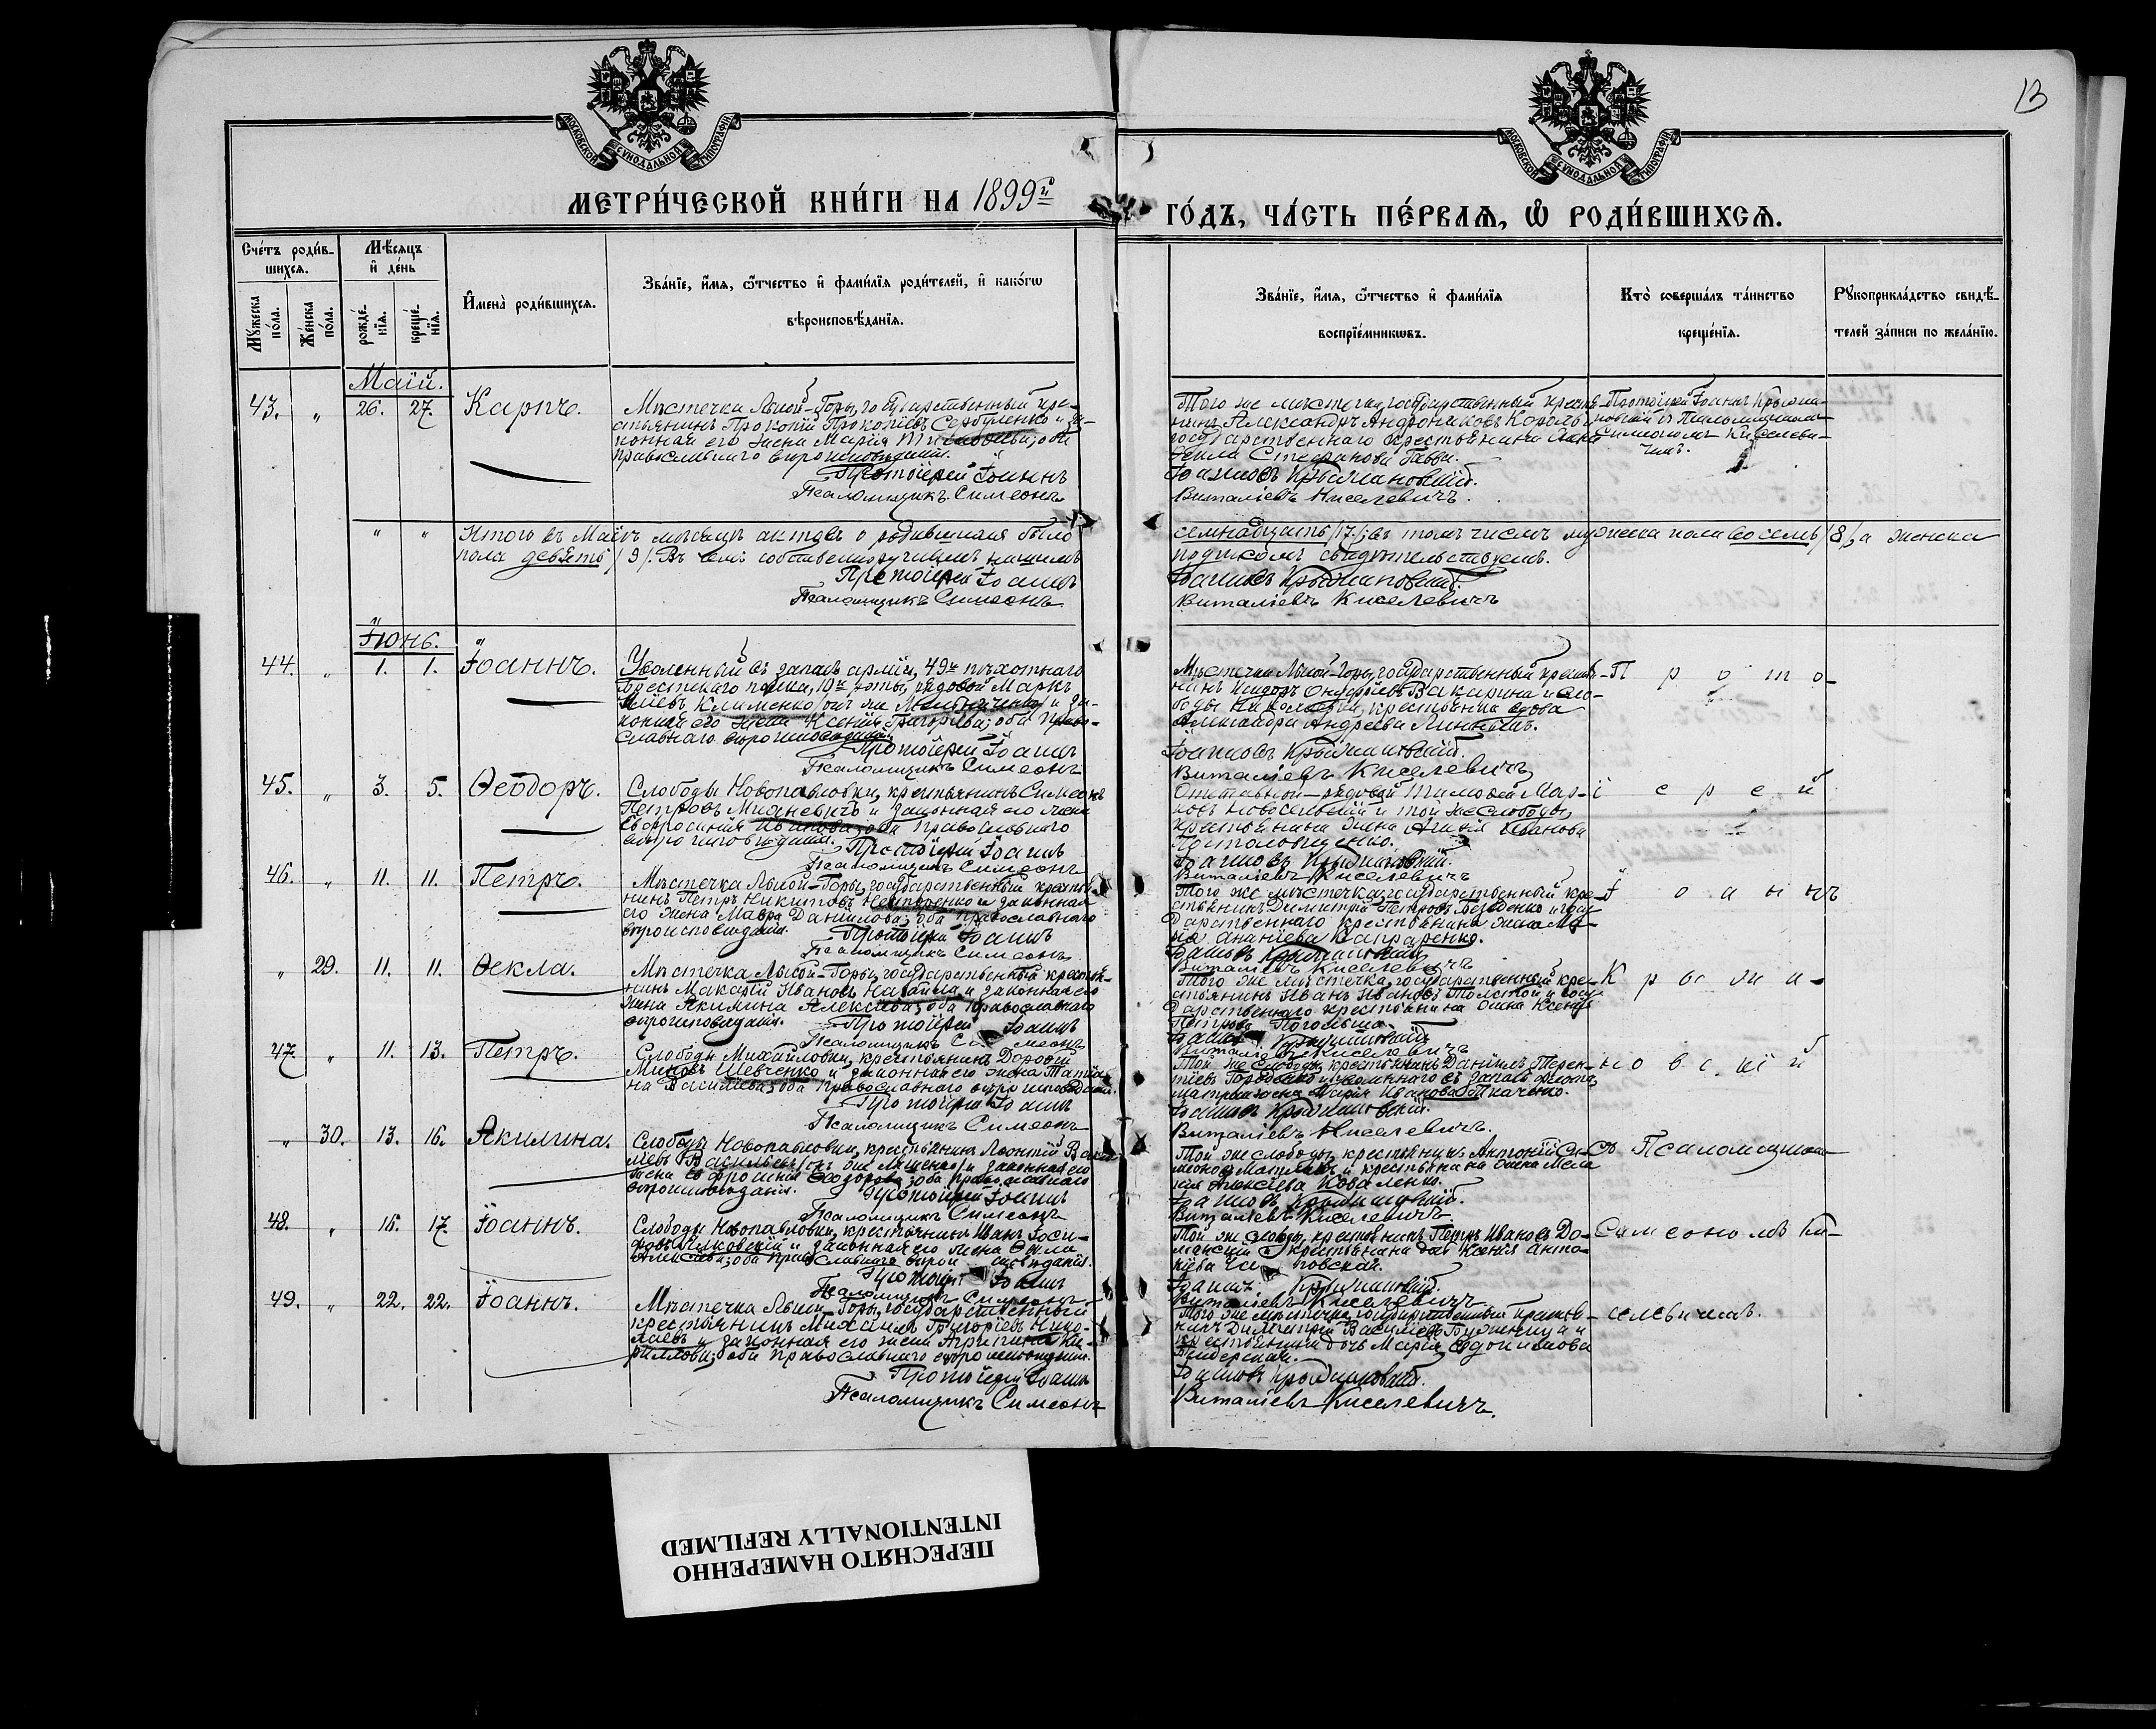 13
МОСКОВСКОЙ СУНОДАЛЬНОЙ ТИПОГРАФІИ
МОСКОВСКОЙ СУНОДАЛЬНОЙ ТИПОГРАФІИ
МЕТРИ́ЧЕСКОЙ КНИ́ГИ НА 1899й
ГО́ДЪ, ЧА́СТЬ ПЕ́РВАѦ, Ѡ РОДИ́ВШИХСѦ.
Сче́тъ роди́в-
шихсѧ.
Мѣ́сѧцъ
и҆ де́нь
Мꙋ́жеска
по́ла.
Же́нска
по́ла.
рожде́-
нїѧ.
креще́-
нїѧ.
И҆мена̀ роди́вшихсѧ.
Зва́нїе, и҆́мѧ, ѻ҆́тчество и҆ фами́лїѧ роди́телей, и҆ како́гѡ
вѣроисповѣ́данїѧ.
Зва́нїе, и҆́мѧ, ѻ҆́тчество и҆ фами́лїѧ
воспрїе́мникѡвъ.
Кто̀ соверша́лъ та́инство
креще́нїѧ.
Рꙋкоприкла́дство свидѣ́-
телей за́писи по жела́нїю.
Маій.
43. " 26. 27. Карпъ.
Мѣстечка Лысой-Горы, государственный кре-
стьянинъ Прокопій Прокопіевъ Сербуленко и за-
конная его жена Марія оба
православнаго вѣроисповѣданія.
Протоіерей Іоаннъ
Псаломщикъ Симеонъ
Того же мѣстечка, государственный кресть-
нинъ Александръ Андрониковъ Король и
государственнаго крестьянина
Стефанова
Іоанновъ Крыжановскій.
Виталіевъ Киселевичъ.
Протоіерей Іоаннъ Крыжа-
новскій съ Псаломщикомъ
Симеономъ Киселеви-
чемъ.
" " Итого въ Маіѣ мѣсяцѣ актовъ о родившихся было
семнадцать /17/; въ томъ числѣ мужеска пола восемь /8/, а женска
пола девять /9/. Въ чемъ собственноручнымъ нашимъ
подписомъ свидѣтельствуемъ.
Протоіерей Іоаннъ
Псаломщикъ Симеонъ
Іоанновъ Крыжановскій.
Виталіевъ Киселевичъ
Іюнь.
44. " 1. 1. Іоаннъ.
Уволенный въ запасъ арміи, 49го пѣхотнаго
Брестскаго полка, 10й роты, рядовой Маркъ
Клименко, онъ же и за-
конная его жена Ксенія Григорьева; оба право-
славнаго вѣроисповѣданія.
Протоіерей Іоаннъ
Псаломщикъ Симеонъ
Мѣстечка Лысой-Горы, государственный кресть-
нинъ Исидоръ Онуфріевъ Вакарина и сло-
боды крестьянка вдова
Александра Андреева
Іоанновъ Крыжановскій.
Виталіевъ Киселевичъ
П р о т о-
45. " 3. 5. Ѳеодоръ.
Слободы Новопавловки, крестьянинъ Симеонъ
Петровъ и законная его жена
Евфросинія Иванова; оба православнаго
вѣроисповѣданія.
Протоіерей Іоаннъ
Псаломщикъ Симеонъ
рядовой Тимоѳей Мар-
ковъ и той же слободы,
крестьянина жена Иванова
Іоанновъ Крыжановскій.
Виталіевъ Киселевичъ
і е р е й
46. " 11. 11. Петръ.
Мѣстечка Лысой-Горы, государственный кресть-
нинъ Петръ Никитовъ Нестеренко и законная
его жена Мавра Данилова; оба православнаго
вѣроисповѣданія.
Протоіерей Іоаннъ
Псаломщикъ Симеонъ
Того же мѣстечка, государственный кре-
стьянинъ Димитрій Петровъ и госу-
дарственнаго крестьянина жена
Ананіева Капраренко.
Іоанновъ Крыжановскій
Виталіевъ Киселевичъ
І о а н н ъ
" 29. 11. 11. Ѳекла.
Мѣстечка Лысой-Горы, государственный крестья-
нинъ Макарій Ивановъ и законная его
жена Акилина Алексѣева; оба православнаго
вѣроисповѣданія.
Протоіерей Іоаннъ
Псаломщикъ Симеонъ
Того же мѣстечка, государственный кре-
стьянинъ Иванъ Ивановъ Толстой и госу-
дарственнаго крестьянина жена Ксенія
Петрова
Іоанновъ Крыжановскій
Виталіевъ Киселевичъ
К р ы ж а-
47. " 11. 13. Петръ.
Слободы Михайловки, крестьянинъ Дороѳей
Миновъ Шевченко и законная его жена Татіа-
на Василіева; оба православнаго вѣроисповѣданія.
Протоіерей Іоаннъ
Псаломщикъ Симеонъ
Той же слободы, крестьянинъ Даніилъ Терен-
тіевъ и уволеннаго въ запасъ флота
матроса жена Марія Иванова Ткаченко.
Іоанновъ Крыжановскій.
Виталіевъ Киселевичъ.
н о в с к і й
" 30. 13. 16. Акилина.
Слободы Новопавловки, крестьянинъ Леонтій
Васильевъ, онъ же и законная его
жена Евфросинія Ѳеодорова; оба православнаго
вѣроисповѣданія.
Протоіерей Іоаннъ
Псаломщикъ Симеонъ
Той же слободы, крестьянинъ Антоній Си-
меоновъ и крестьянина жена Мела-
нія Алексіева Коваленко.
Іоанновъ Крыжановскій.
Виталіевъ Киселевичъ
съ Псаломщикомъ
48. " 16. 17. Іоаннъ.
Слободы Новопавловки, крестьянинъ Иванъ Іоси-
фовъ и законная его жена
Алексѣева; оба православнаго вѣроисповѣданія.
Протоіерей Іоаннъ
Псаломщикъ Симеонъ
Той же слободы, крестьянинъ Петръ Ивановъ До-
манскій и крестьянина дочь Ксенія Анто-
ніева
Іоанновъ Крыжановскій.
Виталіевъ Киселевичъ
Симеономъ Ки-
49. " 22. 22. Іоаннъ.
Мѣстечка Лысой-Горы, государственный
крестьянинъ Михаилъ Григорьевъ Нико-
лаевъ и законная его жена Агрипина Ки-
риллова; оба православнаго вѣроисповѣданія.
Протоіерей Іоаннъ
Псаломщикъ Симеонъ
Того же мѣстечка, государственный кресть-
нинъ Димитрій Василіевъ и
крестьянина дочь Марія Евдокимова
Іоанновъ Крыжановскій.
Виталіевъ Киселевичъ.
селевичемъ.
ПЕРЕСНЯТО НАМЕРЕННО
INTENTIONALLY REFILMED